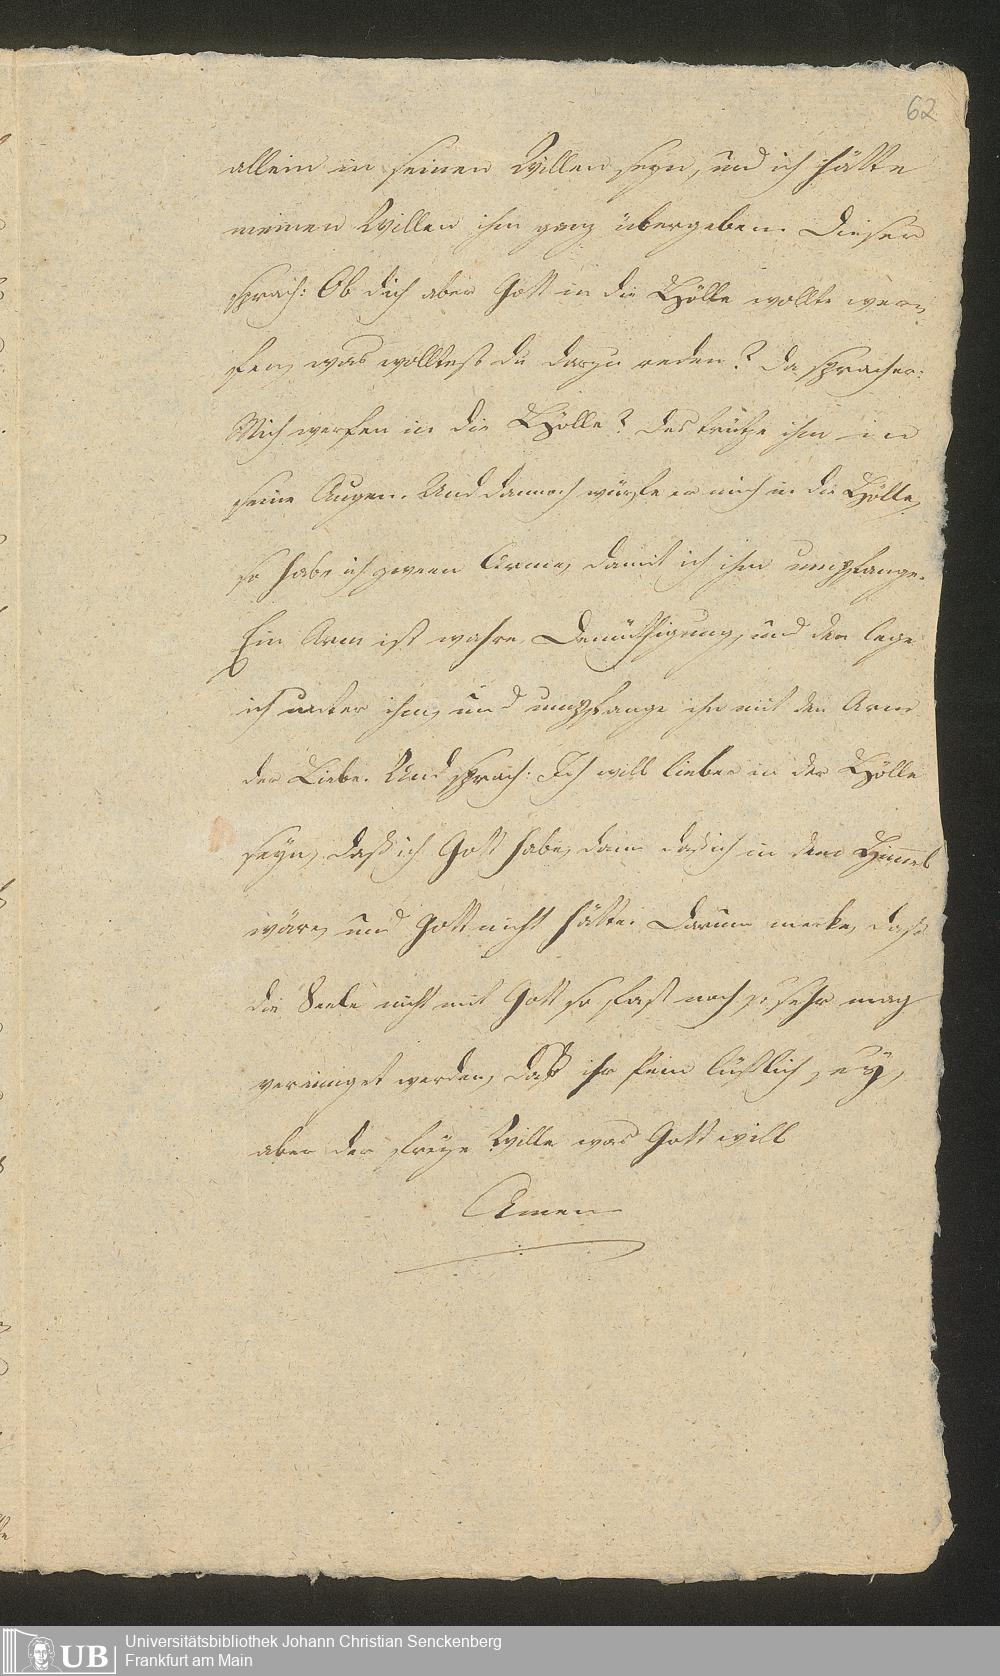 62
allein in seinen Willen seyn, und ich hätte
meinen Willen ihm ganz übergeben. Dieser
sprach: Ob dich aber Gott in die Hölle wollte wer-
fen, was wolltest du darzu reden? Da sprach er:
Mich werfen in die Hölle? Das trütze ihm in
seine Augen. Und dannoch würfe er mich in die Hölle,
so habe ich zween Arme, damit ich ihn umpfange.
Ein Arm ist wahre Demüthigung, und den lege
ich unter ihm, und umpfange ihn mit den Arm
der Liebe. Und sprach: Ich will lieber in der Hölle
seyn, daß ich Gott habe, dann daß ich in dem Himmel
wäre, und Gott nicht hätte. Darum merke, daß
die Seele nicht mit Gott so fast noch so sehr mag
vereiniget werden, daß ihr Pein lüstlich sey,
aber der freye Wille was Gott will
Amen
UB
Universitätsbibliothek Johann Christian Senckenberg
Frankfurt am Main